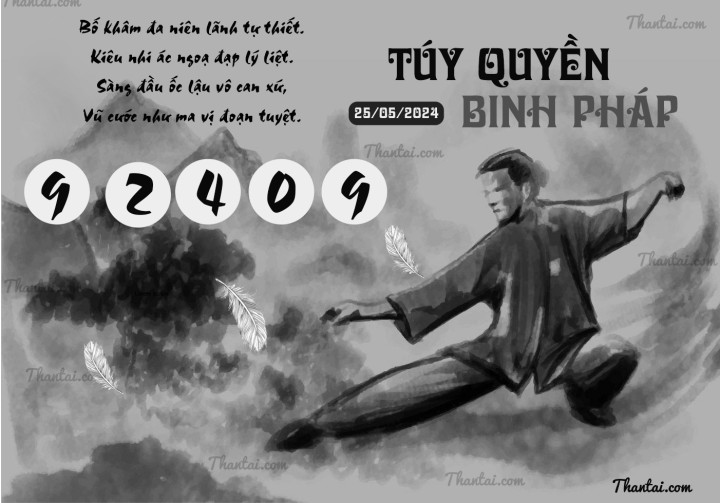 Thantai.com
Bố khâm đa niên lãnh tự thiết.
Kiêu nhi ác ngoạ đạp lý liệt.
Sàng đầu ốc lậu vô can xứ,
Vũ cước như ma vị đoạn tuyệt.
Thantai.com
TÚY QUYỀN
25/05/2024
BINH PHÁP
Thantai.com
9 2 4 0 9
Thantai.com
Thantai.com
Thantai.com
Thantai.com
Thantai.com
Thantai.com
Thantai.com